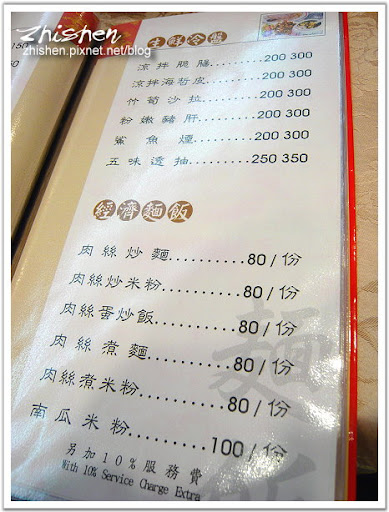 Zhishen
zhishen.pixnet.net/blog
150
生鮮冷盤
涼拌脆腸..........200 300
涼拌海哲皮........200 300
竹筍沙拉..........200 300
粉嫩豬肝..........200 300
鯊魚煙............200 300
五味透抽..........250 350
經濟麵飯
肉絲炒麵..........80/份
肉絲炒米粉..........80/份
肉絲蛋炒飯..........80/份
肉絲煮麵..........80/份
肉絲煮米粉..........80/份
南瓜米粉..........100/份
另加10%服務費
With 10% Service Charge Extra
麵